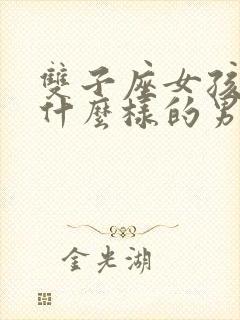 雙子座女孩
什麼樣的男
金光湖